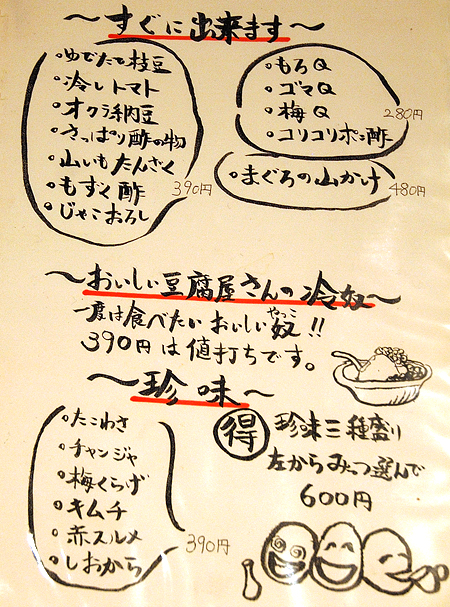 ～すぐに出来ます～
・ゆでたて枝豆
・冷しトマト
・オクラ納豆
・さっぱり酢の物
・山いもたんざく
・もずく酢
・じゃこおろし
390円
・もろQ
・ゴマQ
・梅Q
・コリコリポン酢
280円
・まぐろの山かけ
480円
～おいしい豆腐屋さんの冷奴～
一度は食べたいおいしい奴!!
やっこ
390円は値打ちです。
～珍味～
・たこわさ
・チャンジャ
・梅くらげ
・キムチ
・赤スルメ
・しおから
390円
得 珍味三種盛り
左からみっつ選んで
600円